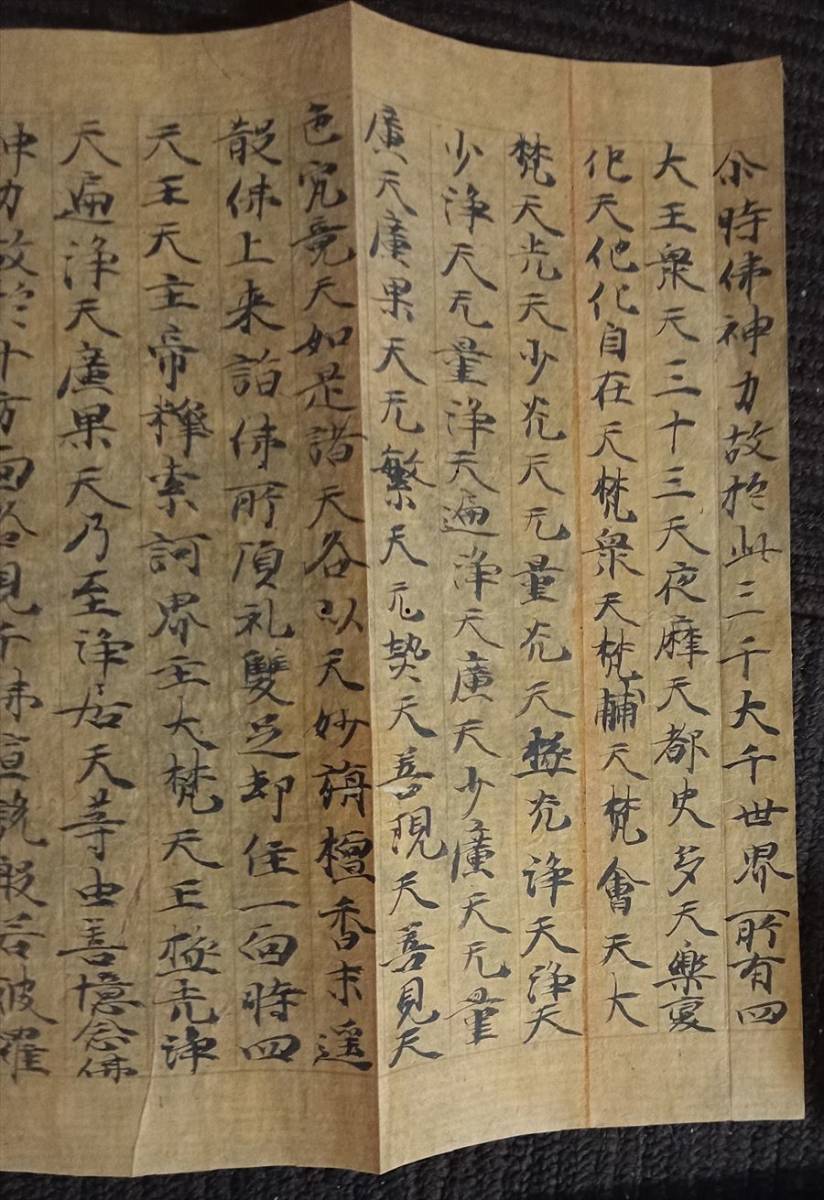 尒時佛神力故於此三千大千世界所有四
大王衆天三十三天夜摩天都史多天樂変
化天他化自在天梵衆天梵輔天梵會天大
梵天光天少光天无量光天極光淨天淨天
少淨天无量淨天遍淨天廣天少廣天无量
廣天廣果天无繁天无熱天善現天善見天
色究竟天如是諸天各以天妙旃檀香末遥
散佛上来詣佛所頂礼雙足却住一面時四
天王天主帝釋索訶界主大梵天王極光淨
天遍淨天廣果天乃至淨居天等由善憶念佛
神力故於十方面各見千佛宣説般若波羅